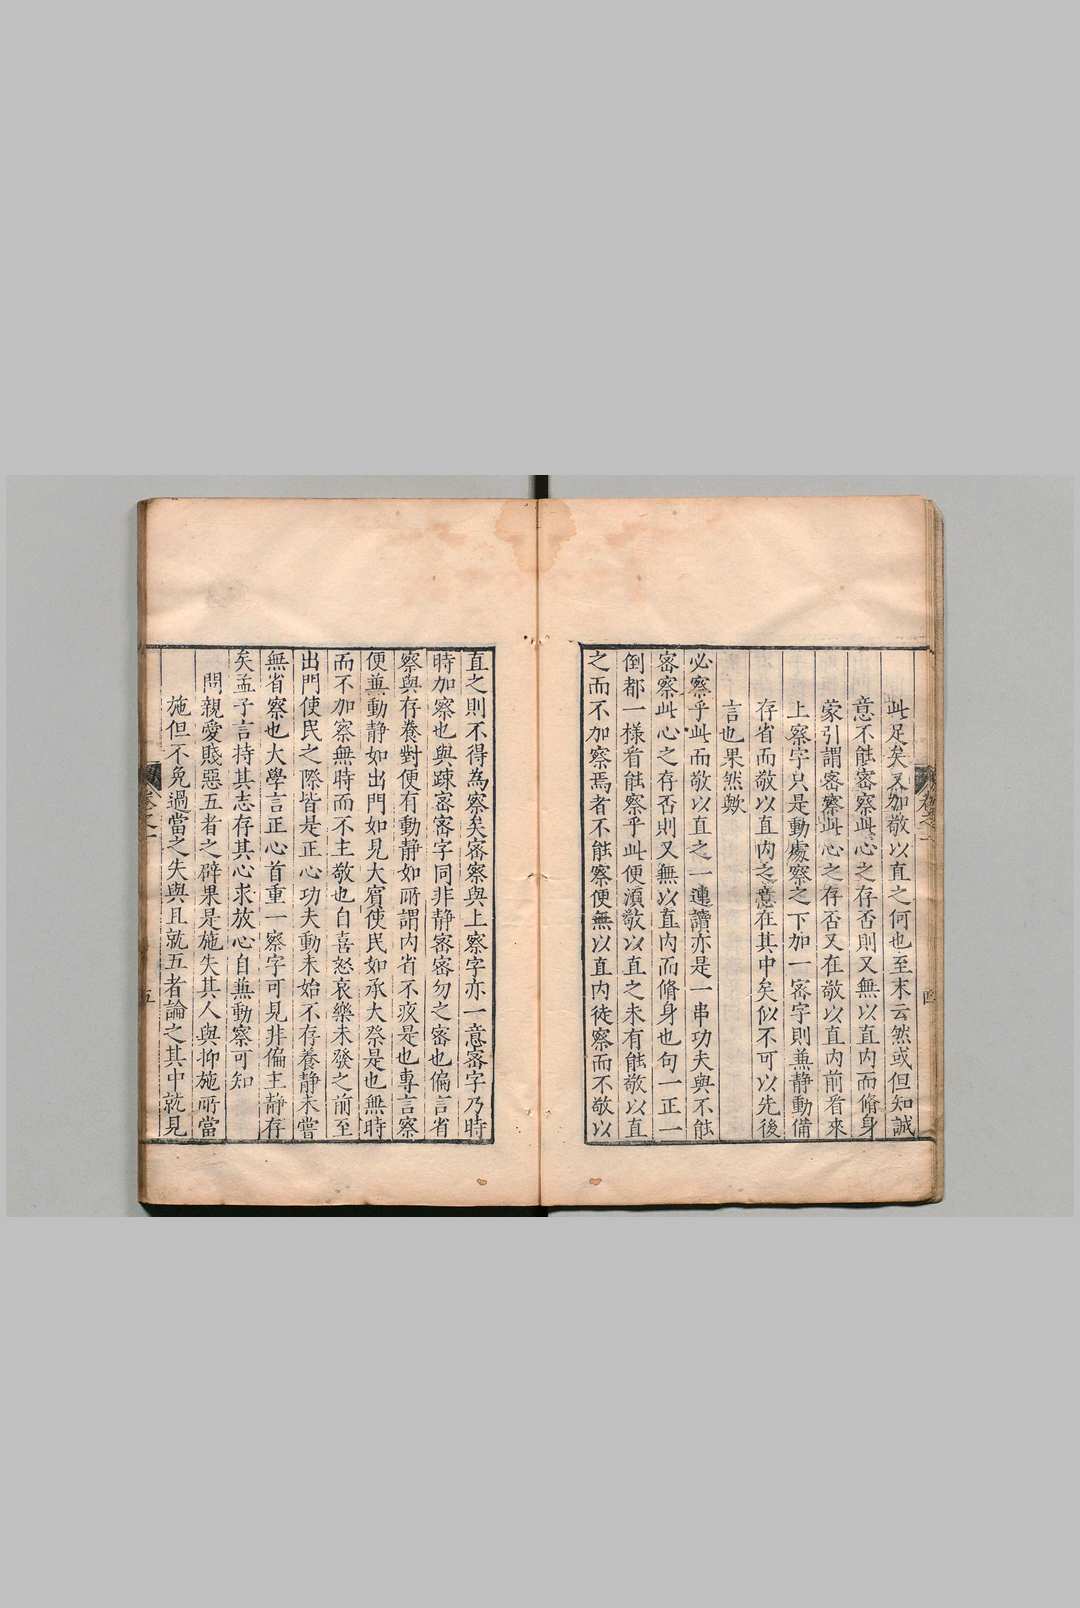 此足矣又加敬以直之何也至末云然或但知誠
意不能密察此心之存否則又無以直內而脩身
蒙引謂密察此心之存否又在敬以直內前看來
上察字只是動處察之下加一密字則兼靜動備
存省而敬以直內之意在其中矣似不可以先後
言也果然歟
必察乎此而敬以直之一連讀亦是一串功夫與不能
密察此心之存否則又無以直內而脩身也句一正一
倒都一樣看能察乎此便湏敬以直之未有能敬以直
之而不加察焉者不能察便無以直內徒察而不敬以
直之則不得為察矣密察與上察字亦一意密字乃時
時加察也與踈密密字同非靜密密勿之密也偏言省
察與存養對便有動靜如所謂內省不疚是也專言察
便兼動靜如出門如見大賓使民如承大祭是也無時
而不加察無時而不主敬也自喜怒哀樂未發之前至
出門使民之際皆是正心功夫動未始不存養靜未嘗
無省察也大學言正心首重一察字可見非偏主靜存
矣孟子言持其志存其心求放心自兼動察可知
問親愛賤惡五者之辟果是施失其人與抑施所當
施但不免過當之失與且就五者論之其中就見
卷之一
四
五